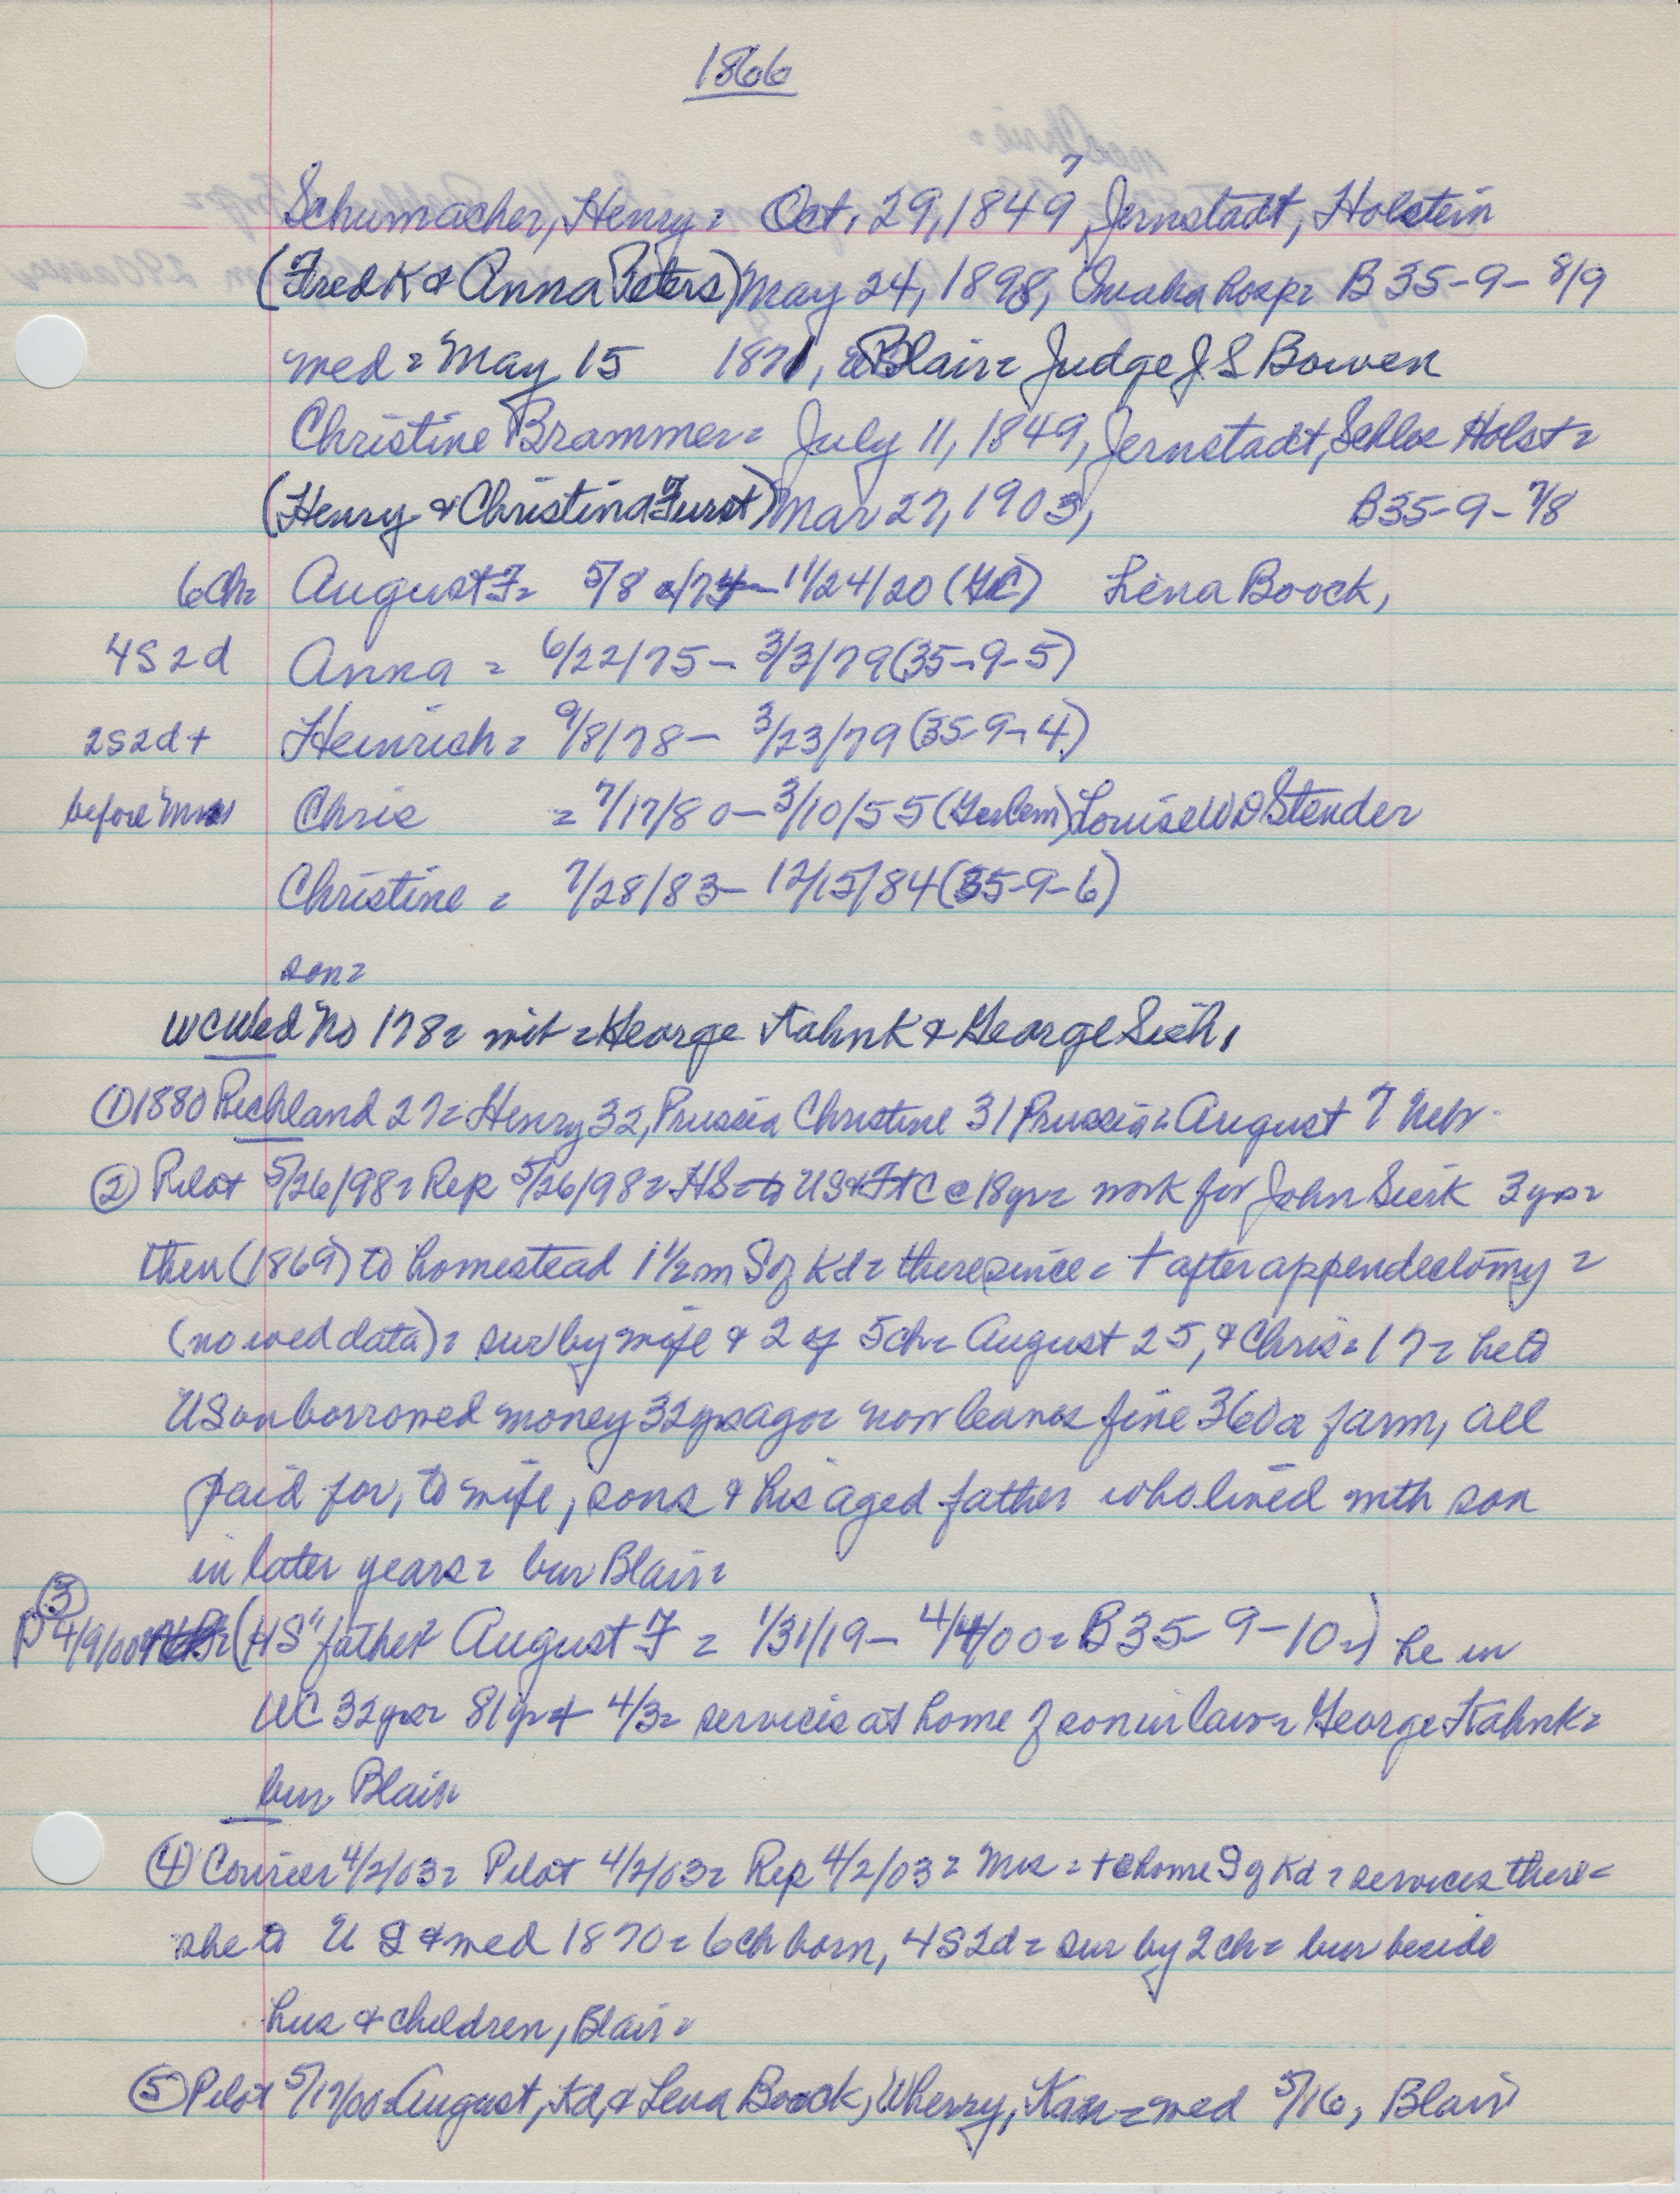 1866
7
Schumacher, Henry = Oct. 29, 1849, Jernstadt, Holstein
(Fredk & Anna Peters) May 24, 1898, Omaha hosp = B 35-9-8/9
med = May 15 1871, Blair = Judge J S Bowen
Christine Brammer = July 11, 1849, Jernstadt, Schles Holst =
(Henry & Christina Furst) Mar 27, 1903, B35-9-7/8
6Ch = August F = 5/8 /73 - 11/24/20 Lena Boock,
4S 2d Anna = 6/22/75 - 3/3/79 (35-9-5)
2s2d + Heinrich = 9/8/78 - 3/23/79 (35-9-4)
before Mrs Chris = 7/17/80 - 3/10/55 Louise W D Stender
Christine = 7/28/83 - 12/15/84 (35-9-6)
son =
WC Wed No 178 = wit = George Fahnk & George Sieh,
① 1880 Richland 27 = Henry 32, Prussia Christine 31 Prussia = August 7 Nebr.
② Pilot 5/26/98 = Rep 5/26/98 = HS = to US & Ft C @ 18yr = work for John Sierk 3 yrs =
then (1869) to homestead 1 1/2 m S of Kd = there since = + after appendectomy =
(no wed data) = sur by wife & 2 of 5 ch = August 25, & Chris = 17 = he to
US on borrowed money 32 yrs ago = now leaves fine 360a farm, all
paid for, to wife, sons & his aged father who lived with son
in later years = bur Blair =
③
P 4/9/00 (HS" father August F = 1/31/19 - 4/4/00 = B35-9-10 =) he in
WC 32 yrs = 81 yr + 4/3 = services at home of son in law = George Fahnk =
bur Blair
④ Courier 4/2/03 = Pilot 4/2/03 = Rep 4/2/03 = Mrs = + @ home S of Kd = services there =
she to U S & med 1870 = 6 ch born, 4S 2d = sur by 2 ch = bur beside
hus & children, Blair =
⑤ Pilot 5/17/00 = August, Kd, & Lena Boock, Wherry, Kan = med 5/16, Blair